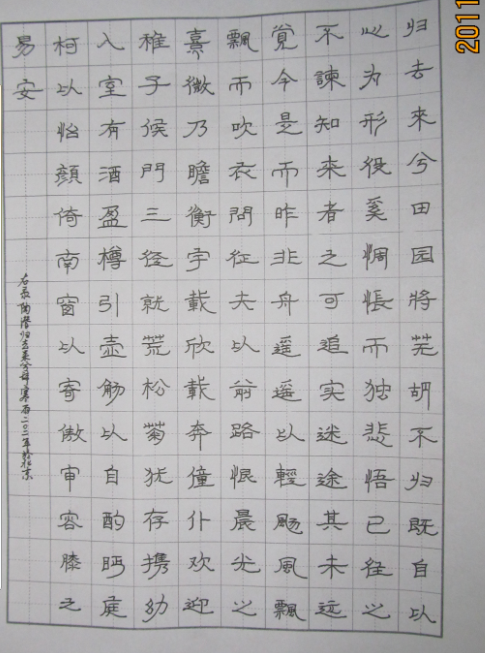 归去來兮田园將芜胡不归既自以
心为形役奚惆悵而独悲悟已往之
不諫知来者之可追实迷途其未远
覺今是而昨非舟遥遥以輕颺風飄
飄而吹衣問征夫以前路恨晨光之
熹微乃瞻衡宇載欣載奔僮仆欢迎
稚子候門三径就荒松菊犹存携幼
入室有酒盈樽引壶觞以自酌眄庭
柯以怡顔倚南窗以寄傲审容膝之
易安
右录陶潜归去来兮辞
2011